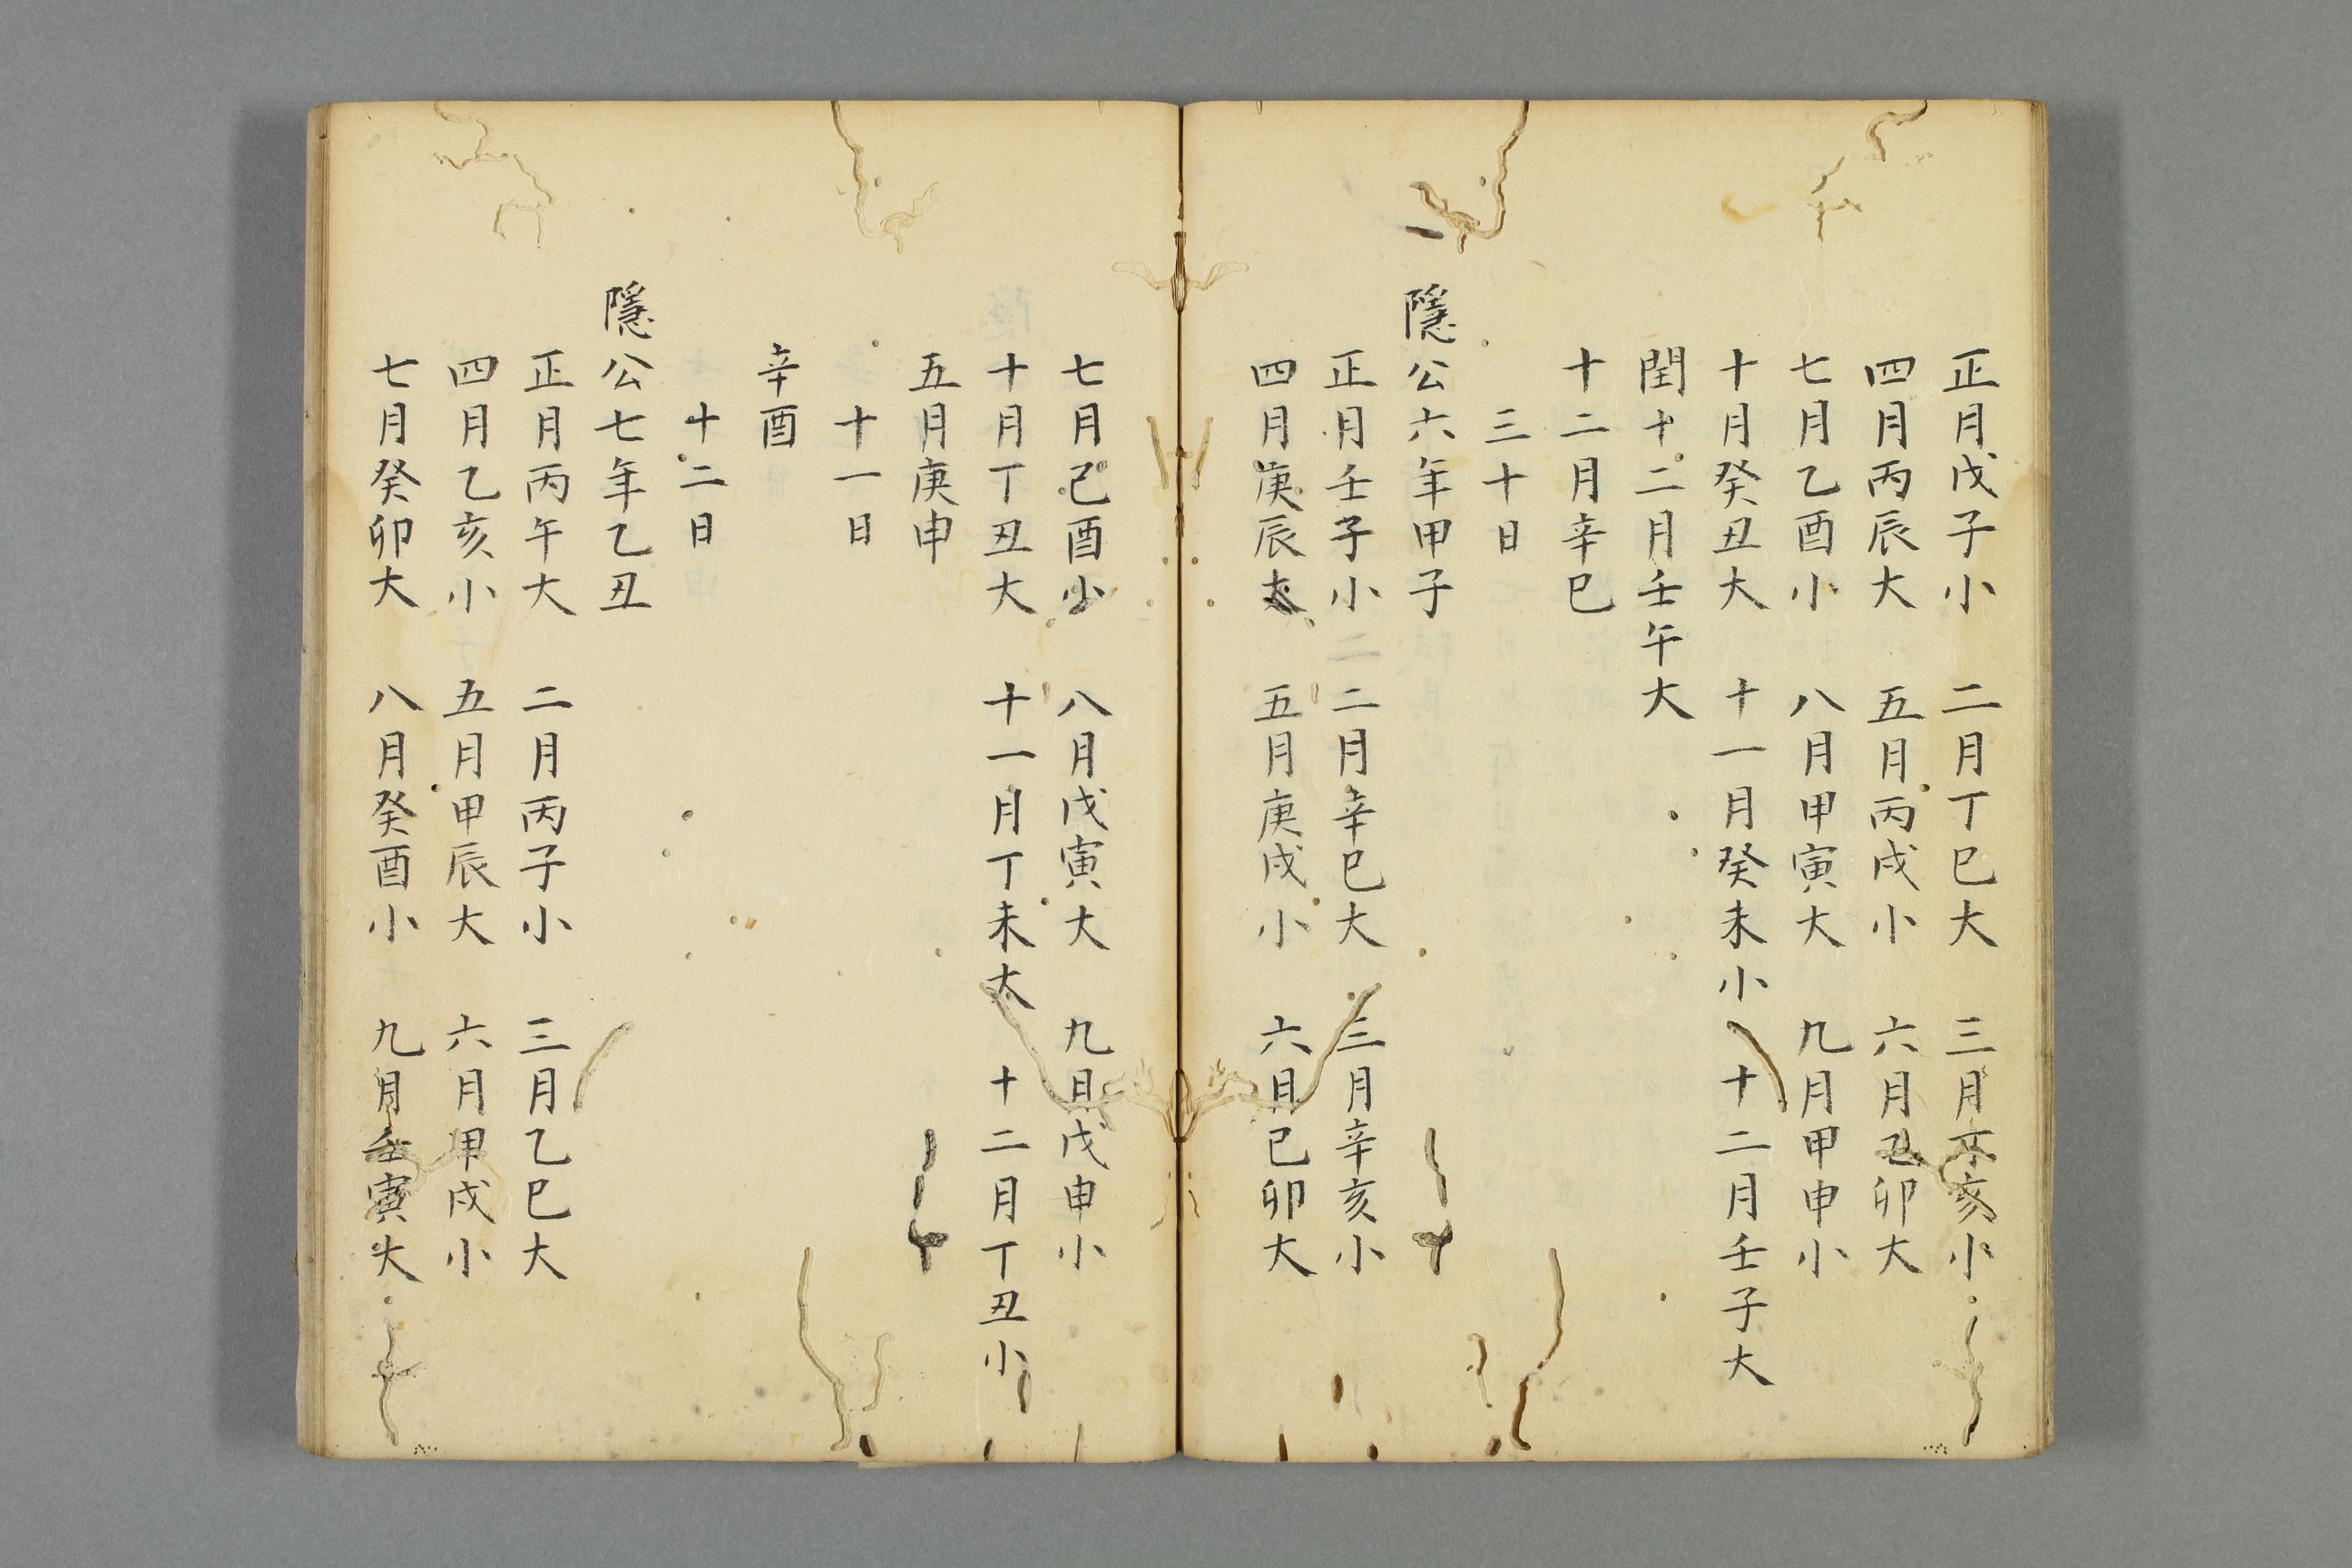 正月戊子小 二月丁巳大 三月丁亥小
四月丙辰大 五月丙戌小 六月乙卯大
七月乙酉小 八月甲寅大 九月甲申小
十月癸丑大 十一月癸未小 十二月壬子大
閏十二月壬午大
十二月辛巳
三十日
隱公六年甲子
正月壬子小 二月辛巳大 三月辛亥小
四月庚辰大 五月庚戌小 六月己卯大
七月己酉小 八月戊寅大 九月戊申小
十月丁丑大 十一月丁未大 十二月丁丑小
五月庚申
十一日
辛酉
十二日
隱公七年乙丑
正月丙午大 二月丙子小 三月乙巳大
四月乙亥小 五月甲辰大 六月甲戌小
七月癸卯大 八月癸酉小 九月壬寅大